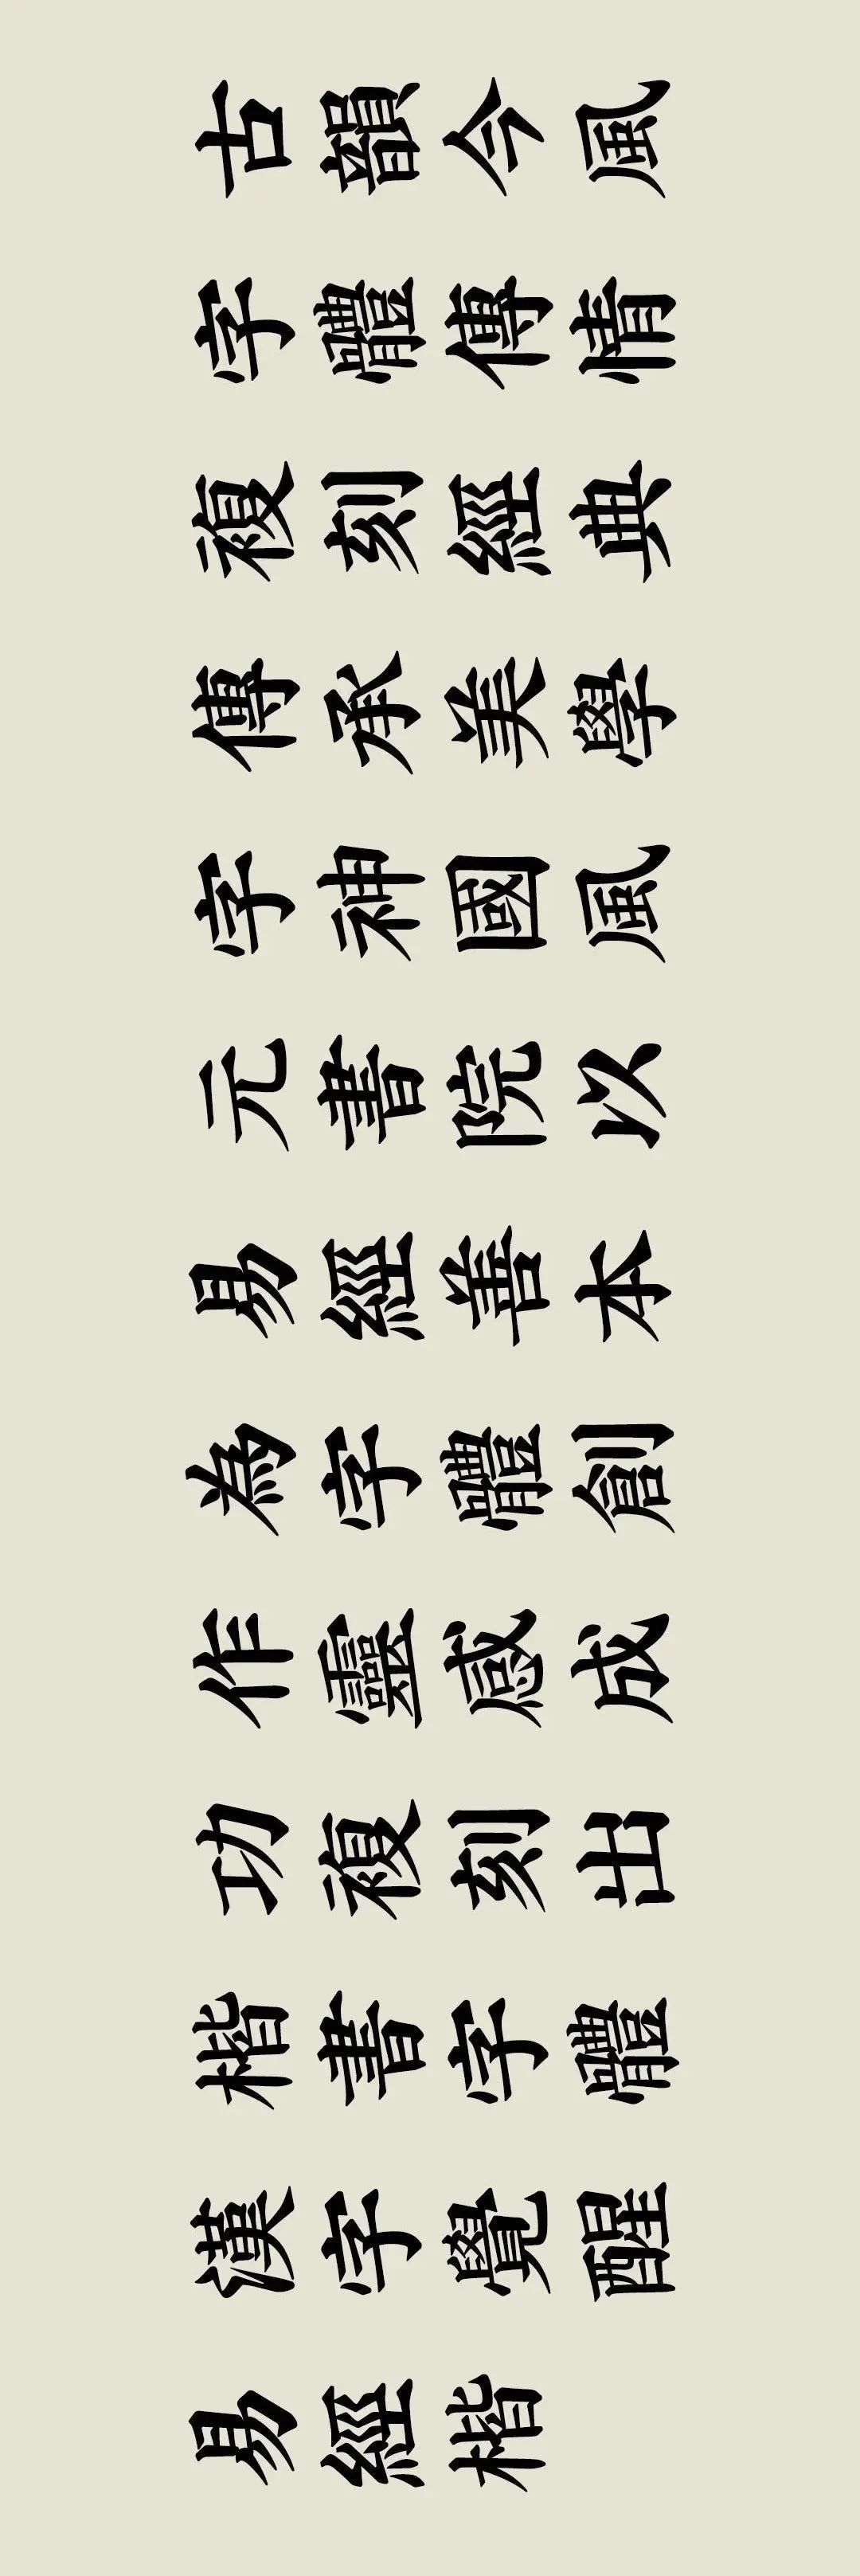 古韻今風
字體傳情
複刻經典
傳承美學
字神國風
元書院以
易經善本
為字體創
作靈感成
功複刻出
楷書字體
漢字覺醒
易經楷